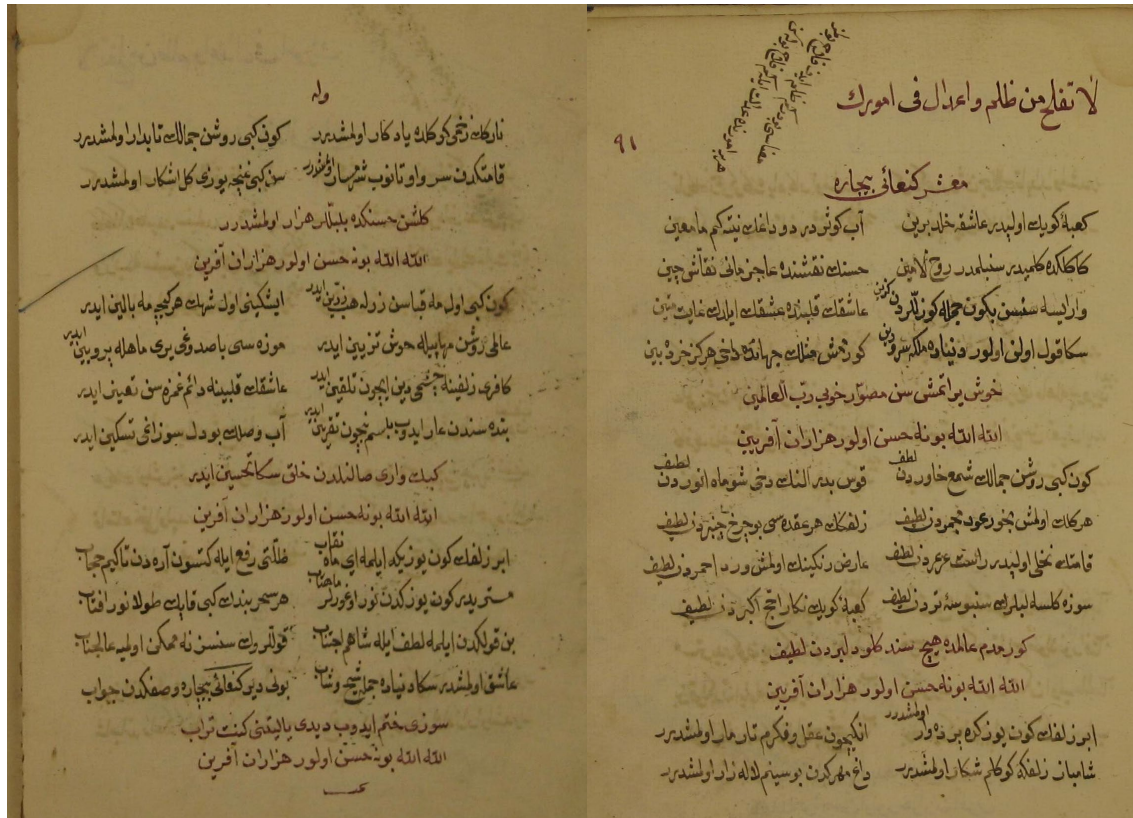 لا تفلح من ظلم واعدل فی امورك
٩١
مفسر کنعانی بیچاره
کعبۀ کویك اولیدر عاشقه خلد برین آب کوثردر دوداغك نیتکم ما معین
کاکلکده کلمیدر سنبلمدر روح الامین حسنك نقشنده عاجز مانی نقاش چین
وار ایسه سنسن بکون جمله کوزللردن کزین عاشقك قلبنده عشقك ایلدك غایت متین
سکا قول اولق اولور دنیاده ملکه سرودین کورمش مثلك جهانده دخی هرکز خرده بین
خوش یراتمش سن مصور خوبی رب العالمین
الله الله بو نه حسن اولور هزاران آفرین
کون کبی روشن جمالك شمع خاوردن لطیف قوس بدر آلنك دخی شو ماه انوردن لطیف
هر کلك اولمش بخور عود مجمردن لطیف زلفکك هر عقده سی بو چرخ چنبردن لطیف
قامتك نخلی اولیدر راست عرعردن لطیف عارض رنکینك اولمش ورد احمردن لطیف
سوزه کلسه لبلرك سنبوسۀ تردن لطیف کعبۀ کویك نکارا حج اکبردن لطیف
کورمدم عالمده هیچ سندكلو دلبردن لطیف
الله الله بو نه حسن اولور هزاران آفرین
ابر زلفك کون یوزکه پرده دار اولمشدرر انکیچون عقل و فکرم تارمار اولمشدرر
شاهباز زلفکه کوکلم شکار اولمشدرر داغ مهرکدن بو سینم لاله زار اولمشدرر
وله
ناوكك زخمی کوکلده یادکار اولمشدرر کون کبی روشن جمالك تابدار اولمشدرر
قامتکدن سرو اوتانوب شرمسار اولمشدرر سن کبی غنچه یوزی کل اشکار اولمشدرر
کلشن حسنکده بلبللر هزار اولمشدرر
الله الله بو نه حسن اولور هزاران آفرین
کون کبی اول مه قباسن زرله هب زرین ایدر ایشیکینی اول شهك هر کیجه مه بالین ایدر
عالمی روشن مهابیله خوش تزیین ایدر موزه سی باصدوغی یری ماهله پروین ایدر
کافری زلفینه چشمی دین ایچون تلقین ایدر عاشقك قلبینه دائم غمزه سن تعیین ایدر
بنده سندن عار ایدوب بلسم نیچون نفرین ایدر آب وصلك بو دل سوزانمی تسکین ایدر
کبك واری صالنلدن خلق سکا تحسین ایدر
الله الله بو نه حسن اولور هزاران آفرین
ابر زلفك کون یوزیکه ایلمه ای ماه نقاب ظلتی رفع ایله کتسون آره دن تاکیم حجاب
مستریدیر کون یوزکدن نور اوغورلر ماهتاب هر سحر بندك کبی قاپکه طولانور افتاب
بن قولکدن ایلمه لطف ایله شاهم اجتناب قوللروك سنسز نه ممکن اولمیه عالیجناب
عاشق اولمشدر سکا دنیاده جمله شیخ و شاب بونی دیر کنعانی بیچاره وصفکدن جواب
سوزی ختم ایدوب دیدی یا لیتنی کنت تراب
الله الله بو نه حسن اولور هزاران آفرین